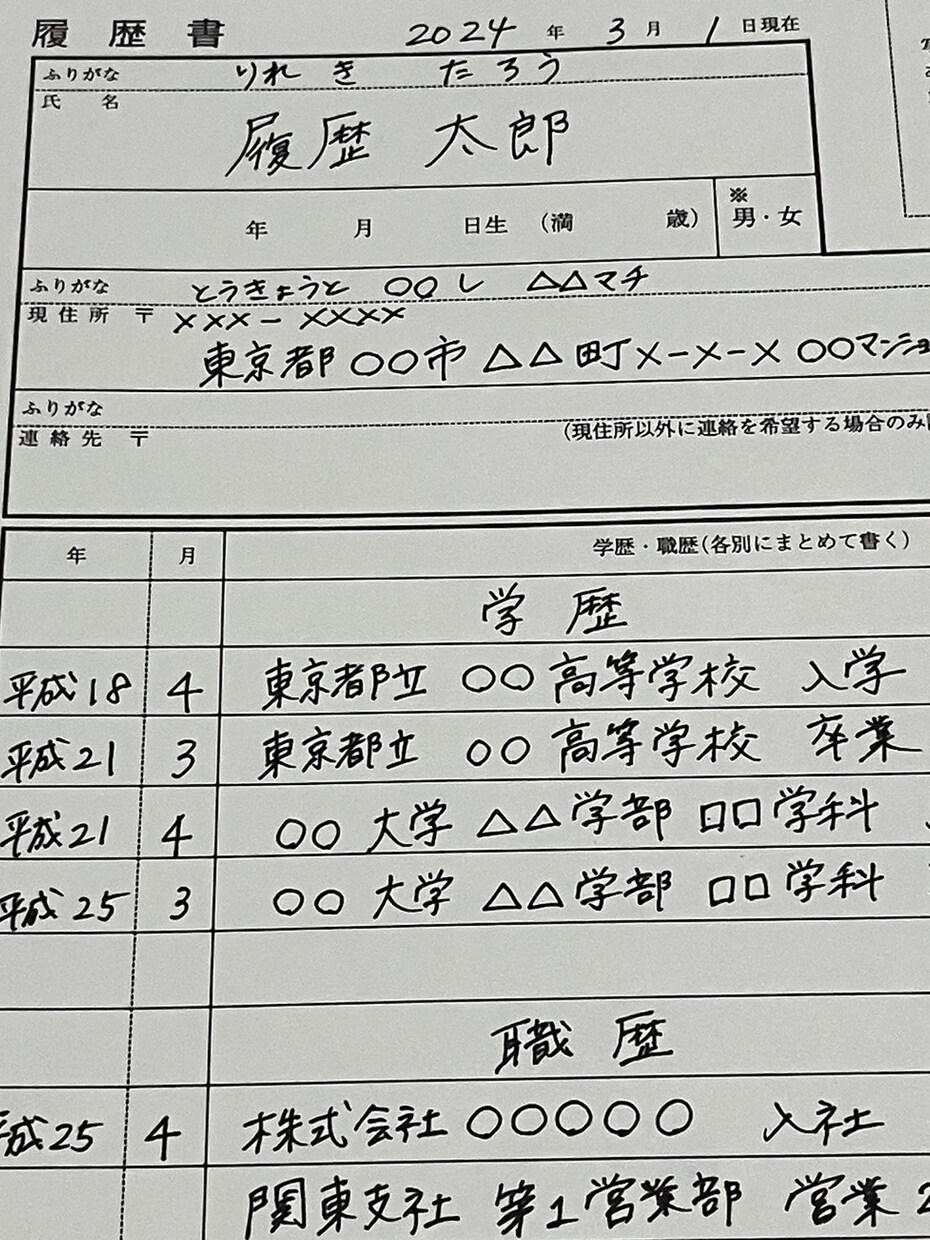 履歴書 2024年3月1日現在
ふりがな りれき たろう
氏名 履歴 太郎
年 月 日生 (満 歳) ※男・女
ふりがな とうきょうと ○○し △△マチ
現住所 〒×××-××××
東京都○○市△△町×-×-× ○○マンショ
ふりがな
連絡先 〒 (現住所以外に連絡を希望する場合のみ
年 月 学歴・職歴(各別にまとめて書く)
学歴
平成18 4 東京都立 ○○高等学校 入学
平成21 3 東京都立 ○○高等学校 卒業
平成21 4 ○○大学 △△学部 □□学科
平成25 3 ○○大学 △△学部 □□学科
職歴
平成25 4 株式会社○○○○○ 入社
関東支社 第1営業部 営業2